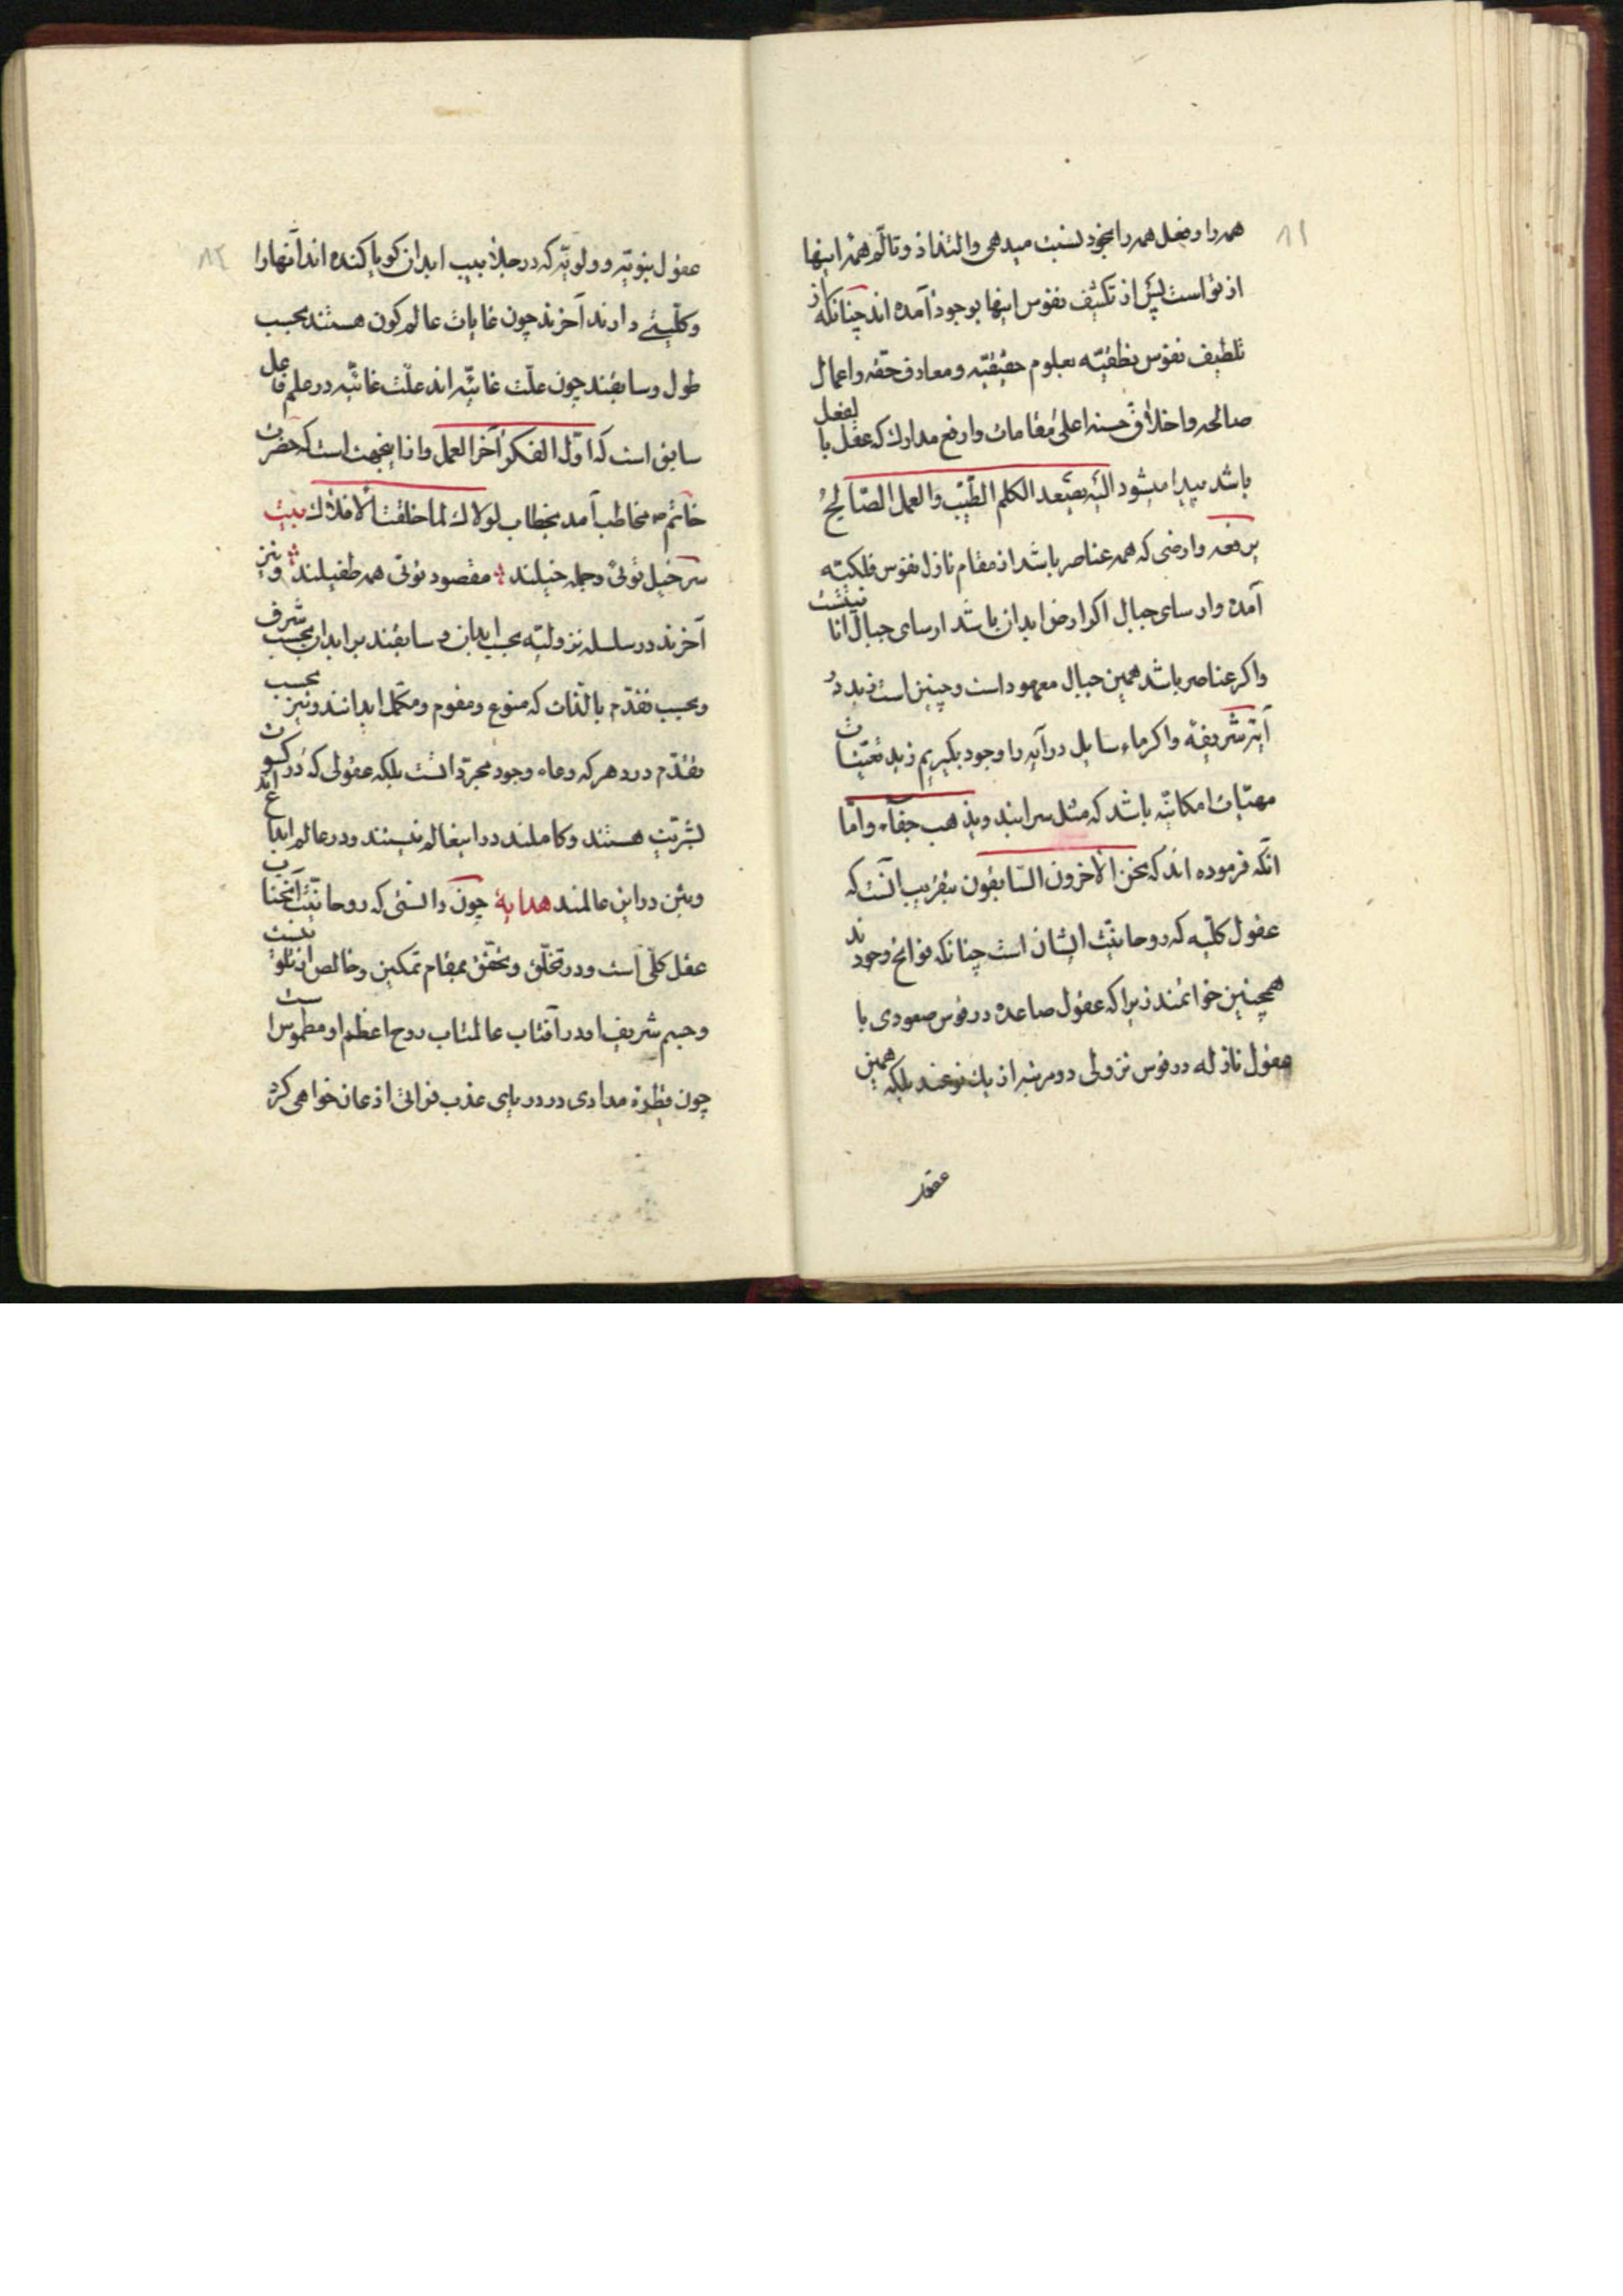 ۸۱
همه را و فعل همه را بخود نسبت میدهی و التذاذ و تالّم همهٔ اینها
از تو است پس از تکثیف نفوس اینها بوجود آمده اند چنانکه از
تلطیف نفوس نطقیّه بعلوم حقیقیّه و معارف حقّه و اعمال
صالحه و اخلاق حسنه اعلی مقامات و ارفع مدارک که عقل بالفعل
باشد پیدا میشود الیه یصعد الکلم الطّیّب و العمل الصّالحُ
یرفعه و ارضی که همه عناصر باشد از مقام نازل نفوس فلکیّه
آمده و ارسای جبال اگر ارض ابدان باشد ارسای جبال انانیّتست
و اگر عناصر باشد همین جبال معهود است و چنین است زبد در
آیهٔ شریفه و اگر ماء سایل در آیه را وجود بگیریم زبد تعیّنات
مهیّات امکانیّه باشد که مثل سرابند و یذهب جفآء و امّا
آنکه فرموده اند که نحن الآخرون السّابقون بتقریب آنست که
عقول کلّیه که روحانیّت ایشان است چنانکه فواتح وجودند
همچنین خواتمند زیرا که عقول صاعده در قوس صعودی با
عقول نازله در قوس نزولی دو مرتبه از یک نوعند بلکه همین
عقول
۸۲
عقول نبویّه و ولویّه که در جلابیب ابدان گویا کنده اند آنها را
و کلّیتی دارند آخرند چون غایات عالم کون هستند بحسب
طول و سابقند چون علّت غائیّه اند علّت غائیّه در علم فاعل
سابق است که اوّل الفکر آخر العمل و از اینجهت است که حضرت
خاتم ص مخاطب آمد بخطاب لولاک لما خلقت الافلاک بیت
سر خیل توئی و جمله خیلند مقصود توئی همه طفیلند و نیز
آخرند در سلسله نزولیّه بحسب ابدان و سابقند بر ابدان بحسب شرف
و بحسب تقدّم بالذّات که متنوع و مقوم و مکمّل ابدانند و نیز بحسب
تقدّم در دهر که وعاء وجود مجرّد است بلکه عقولی که در کسوت
بشریّت هستند و کاملند در اینعالم نیستند و در عالم ابداعند
و بین در این عالمند هدایة چون دانستی که روحانیّت آنجناب
عقل کلّی است و در تخلّق و تحقّق بمقام تمکین و خالص از تلوینست
و جسم شریف او در آفتاب عالمتاب روح اعظم او مطموس است
چون قطرهٔ مدادی در دریای عذب فراتی اذعان خواهی کرد